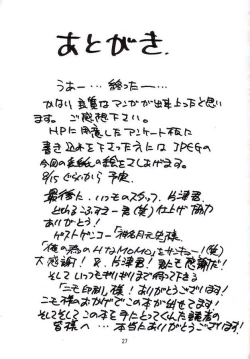 あとがき.
うぁー…終ったー…
かなり良質なマンガが出来上ったと思い
ます。ご感想下さい。
HPに用意したアンケート板に
書き込みを下さった方には JPEGの
今回の表紙の絵をさしあげます。
8/15ぐらいから予定.
最後に、いつものスタッフ、片津君、
(笑)仕上げ協力
ありがとう!
ゲストゲンコー
「俺の為のHなMOMO」をサンキュー!(笑)
大感謝! 又、片津君!君にも感謝だ!
そしていつもぎりぎりまで待って下さる
「ニモ印刷」様! ありがとうございます!
ニモ様のおかげでこの本が出せてます!
そしてそしてこの本を手にとってくんた読者の
皆様へ…本当にありがとうございます!
27